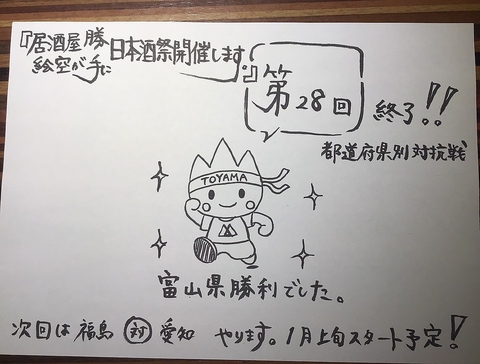 『居酒屋 勝手に
絵空が 日本酒祭開催します。』
第28回 終了!!
都道府県別対抗戦
TOYAMA
富山県勝利でした。
次回は 福島 対 愛知 やります。1月上旬スタート予定!